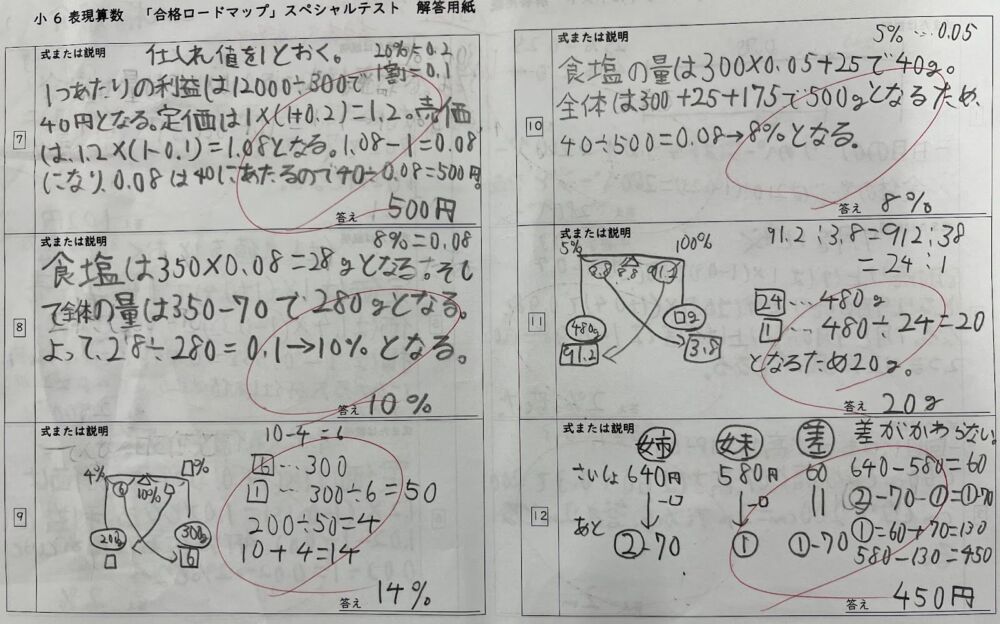 小6 表現算数 「合格ロードマップ」スペシャルテスト 解答用紙
7
式または説明
仕入れ値を1とおく。
20%=0.2
1割=0.1
1つあたりの利益は12000÷300で
40円となる。定価は1×(1+0.2)=1.2。売価
は、1.2×(1-0.1)=1.08となる。1.08-1=0.08
になり、0.08は40にあたるので40÷0.08=500円。
答え 500円
8
式または説明
8%=0.08
食塩は350×0.08=28gとなる。そし
て全体の量は350-70で280gとなる。
よって、28÷280=0.1→10%となる。
答え 10%
9
式または説明
10-4=6
4% 10% □%
6 4
200g 300g
□ 6
6…300
1…300÷6=50
200÷50=4
10+4=14
答え 14%
10
式または説明
5%…0.05
食塩の量は300×0.05+25で40g。
全体は300+25+175で500gとなるため、
40÷500=0.08→8%となる。
答え 8%
11
式または説明
5% 100%
3.8 8.8 91.2
480g □g
91.2 3.8
91.2:3.8=912:38
=24:1
24…480g
1…480÷24=20
となるため20g。
答え 20g
12
式または説明
姉 妹 差 差がかわらない!
さいしょ 640円 580円 60
-□ -□
あと ②-70 ① ①-70
640-580=60
②-70-①=①-70
①=60+70=130
580-130=450
答え 450円